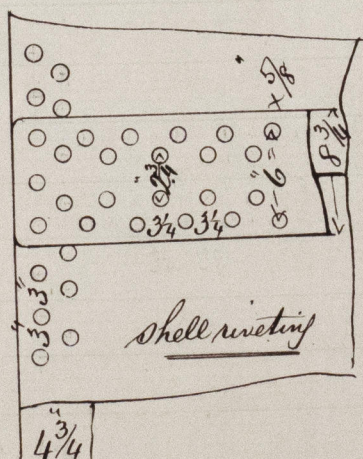 " × 5/8
8 3/4 "
2 3/4 "
← - 6 " = →
3 1/4 3 1/4
3 " 3 "
shell riveting
4 3/4 "